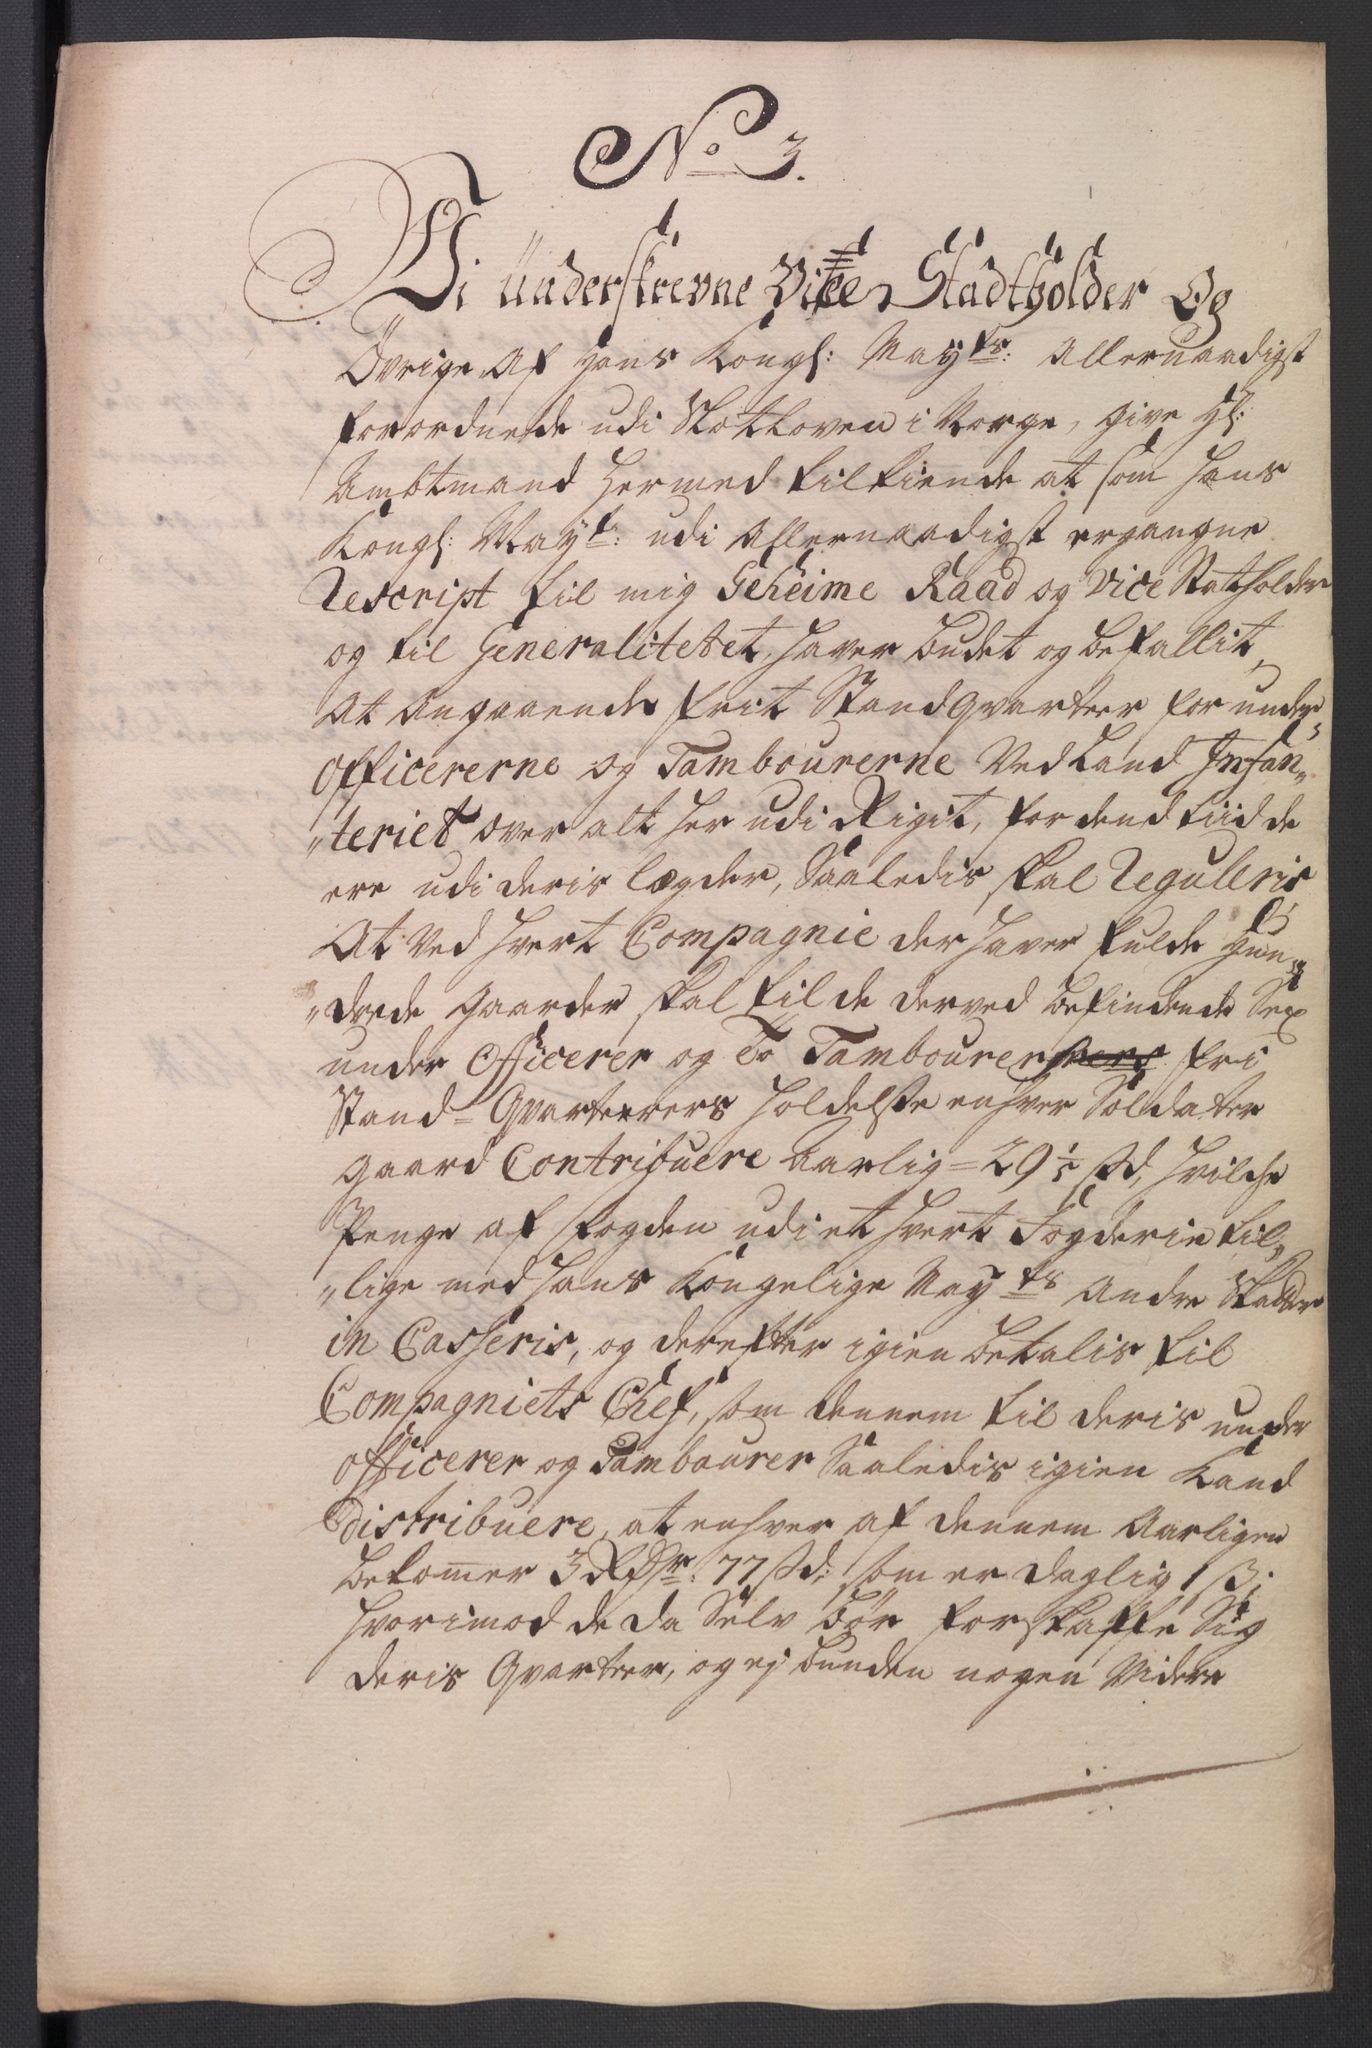 No 3.
Vi Underskrevne Vice Stadtholder Og
Övrige af hans Kongl: Mayts: Allernaadigst
forordnede udi Slotsloven i Norge, give Hr:
Ambtmand hermed tilkiende at som hans
Kongl: Mayt: udi Allernaadigst ergangne
Rescript til mig Geheime Raad og Vice Statholder
og til Generalitetet, haver budet og befallit,
At Angaaende frit Standqvarteer for under
Officererne og Tambourerne Ved Land Infan„
„teriet over alt her udi Rigit, for dend tiid de
ere udi deris Lægder, Saaledis skal Reguleris
At Ved hvert Compagnie der haver fulde Hun„
„drede gaarder skal til de derved befindende Sex
under Officerer og To Tambourer fri
Stand-Qvarteerers holdelse enhver Soldater
gaard Contribuere Aarlig = 29 1/5 sk, hvilche
Penge af fogden udi et hvert Fogderie til„
„lige med hans Kongelige Mayts Andre Skatter
in Casseris, og derefter igien betalis til
Compagniets Chef, som dennem til deris under
officerer og Tambourer Saaledis igien kand
distribuere, at enhver af dennem Aarligen
bekommer 3 Rdr: 77 sk: som er daglig 1 ß;
hvorimod de da Selv bör forskaffe Sig
deris Qvarteer, og ej bunden nogen Videre